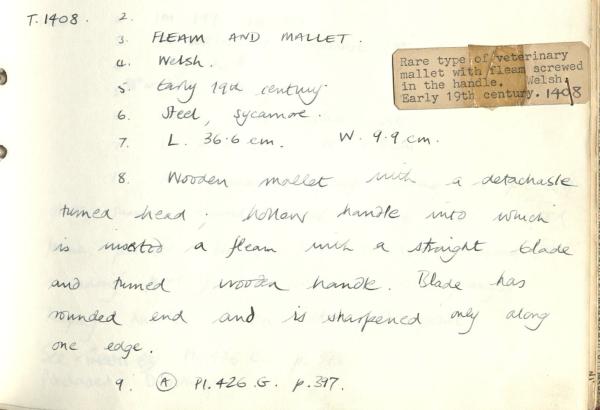 T. 1408. 2.
3. FLEAM AND MALLET.
4. Welsh.
5. Early 19th century.
6. Steel, sycamore.
7. L. 36.6 cm. W. 9.9 cm.
8. Wooden mallet with a detachable
turned head; hollow handle into which
is inserted a fleam with a straight blade
and turned wooden handle. Blade has
rounded end and is sharpened only along
one edge.
9. A Pl. 426. G. p. 397.
Rare type of veterinary
mallet with fleam screwed
in the handle. Welsh,
Early 19th century. 1408